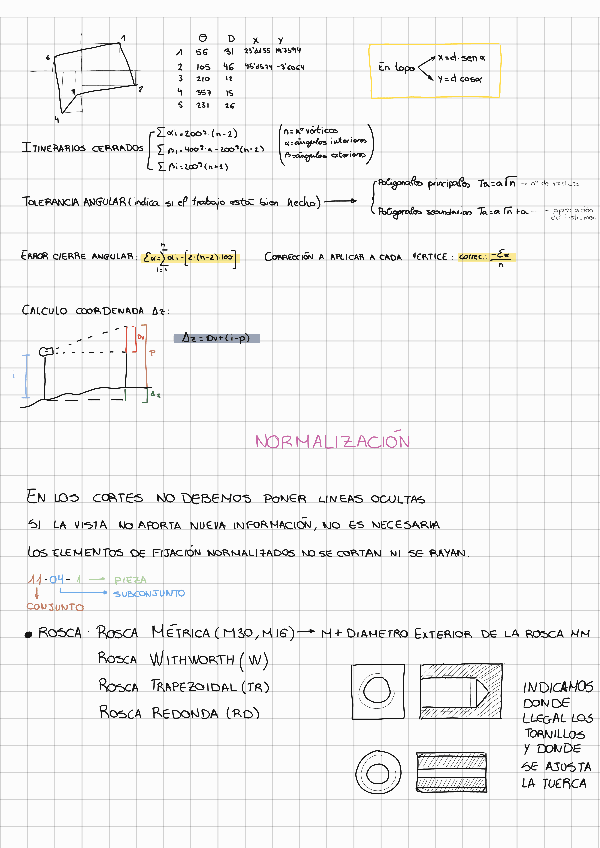 θ D X Y
1 56 31
2 105 46
3 210 12
4 357 15
5 231 26
1
2
3
4
6
En topo
X=d·senα
Y=d cosα
ITINERARIOS CERRADOS
∑αi=200ᵍ·(n-2)
∑βi=400ᵍ·n-200ᵍ(n-2)
∑βi=200ᵍ(n+2)
n=nº vértices
α=ángulos interiores
β=ángulos exteriores
TOLERANCIA ANGULAR (indica si el trabajo está bien hecho)
Poligonales principales Ta=a√n
Poligonales secundarias Ta=a√n+a
ERROR CIERRE ANGULAR: Eα=∑αi-[2·(n-2)·100]
CORRECCIÓN A APLICAR A CADA VERTICE: correc.: -Eα/n
CALCULO COORDENADA Δz:
Δz=Dv+(i-p)
Dv
P
i
Δz
NORMALIZACIÓN
EN LOS CORTES NO DEBEMOS PONER LINEAS OCULTAS
SI LA VISTA NO APORTA NUEVA INFORMACIÓN, NO ES NECESARIA
LOS ELEMENTOS DE FIJACIÓN NORMALIZADOS NO SE CORTAN NI SE RAYAN.
11-04-1 → PIEZA
SUBCONJUNTO
CONJUNTO
● ROSCA · ROSCA MÉTRICA (M30, M16) → M + DIAMETRO EXTERIOR DE LA ROSCA MM
ROSCA WITHWORTH (W)
ROSCA TRAPEZOIDAL (TR)
ROSCA REDONDA (RD)
INDICAMOS
DONDE
LLEGAL LOS
TORNILLOS
Y DONDE
SE AJUSTA
LA TUERCA